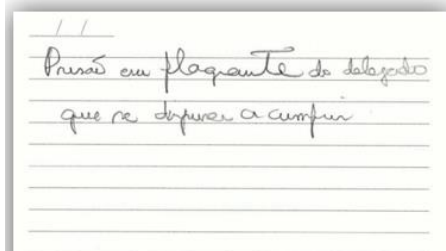 / /
Prisão em flagrante do delegado
que se dispuser a cumprir